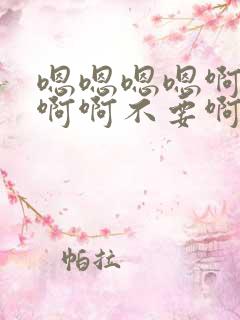 嗯嗯嗯嗯啊
啊啊不要啊
帕拉